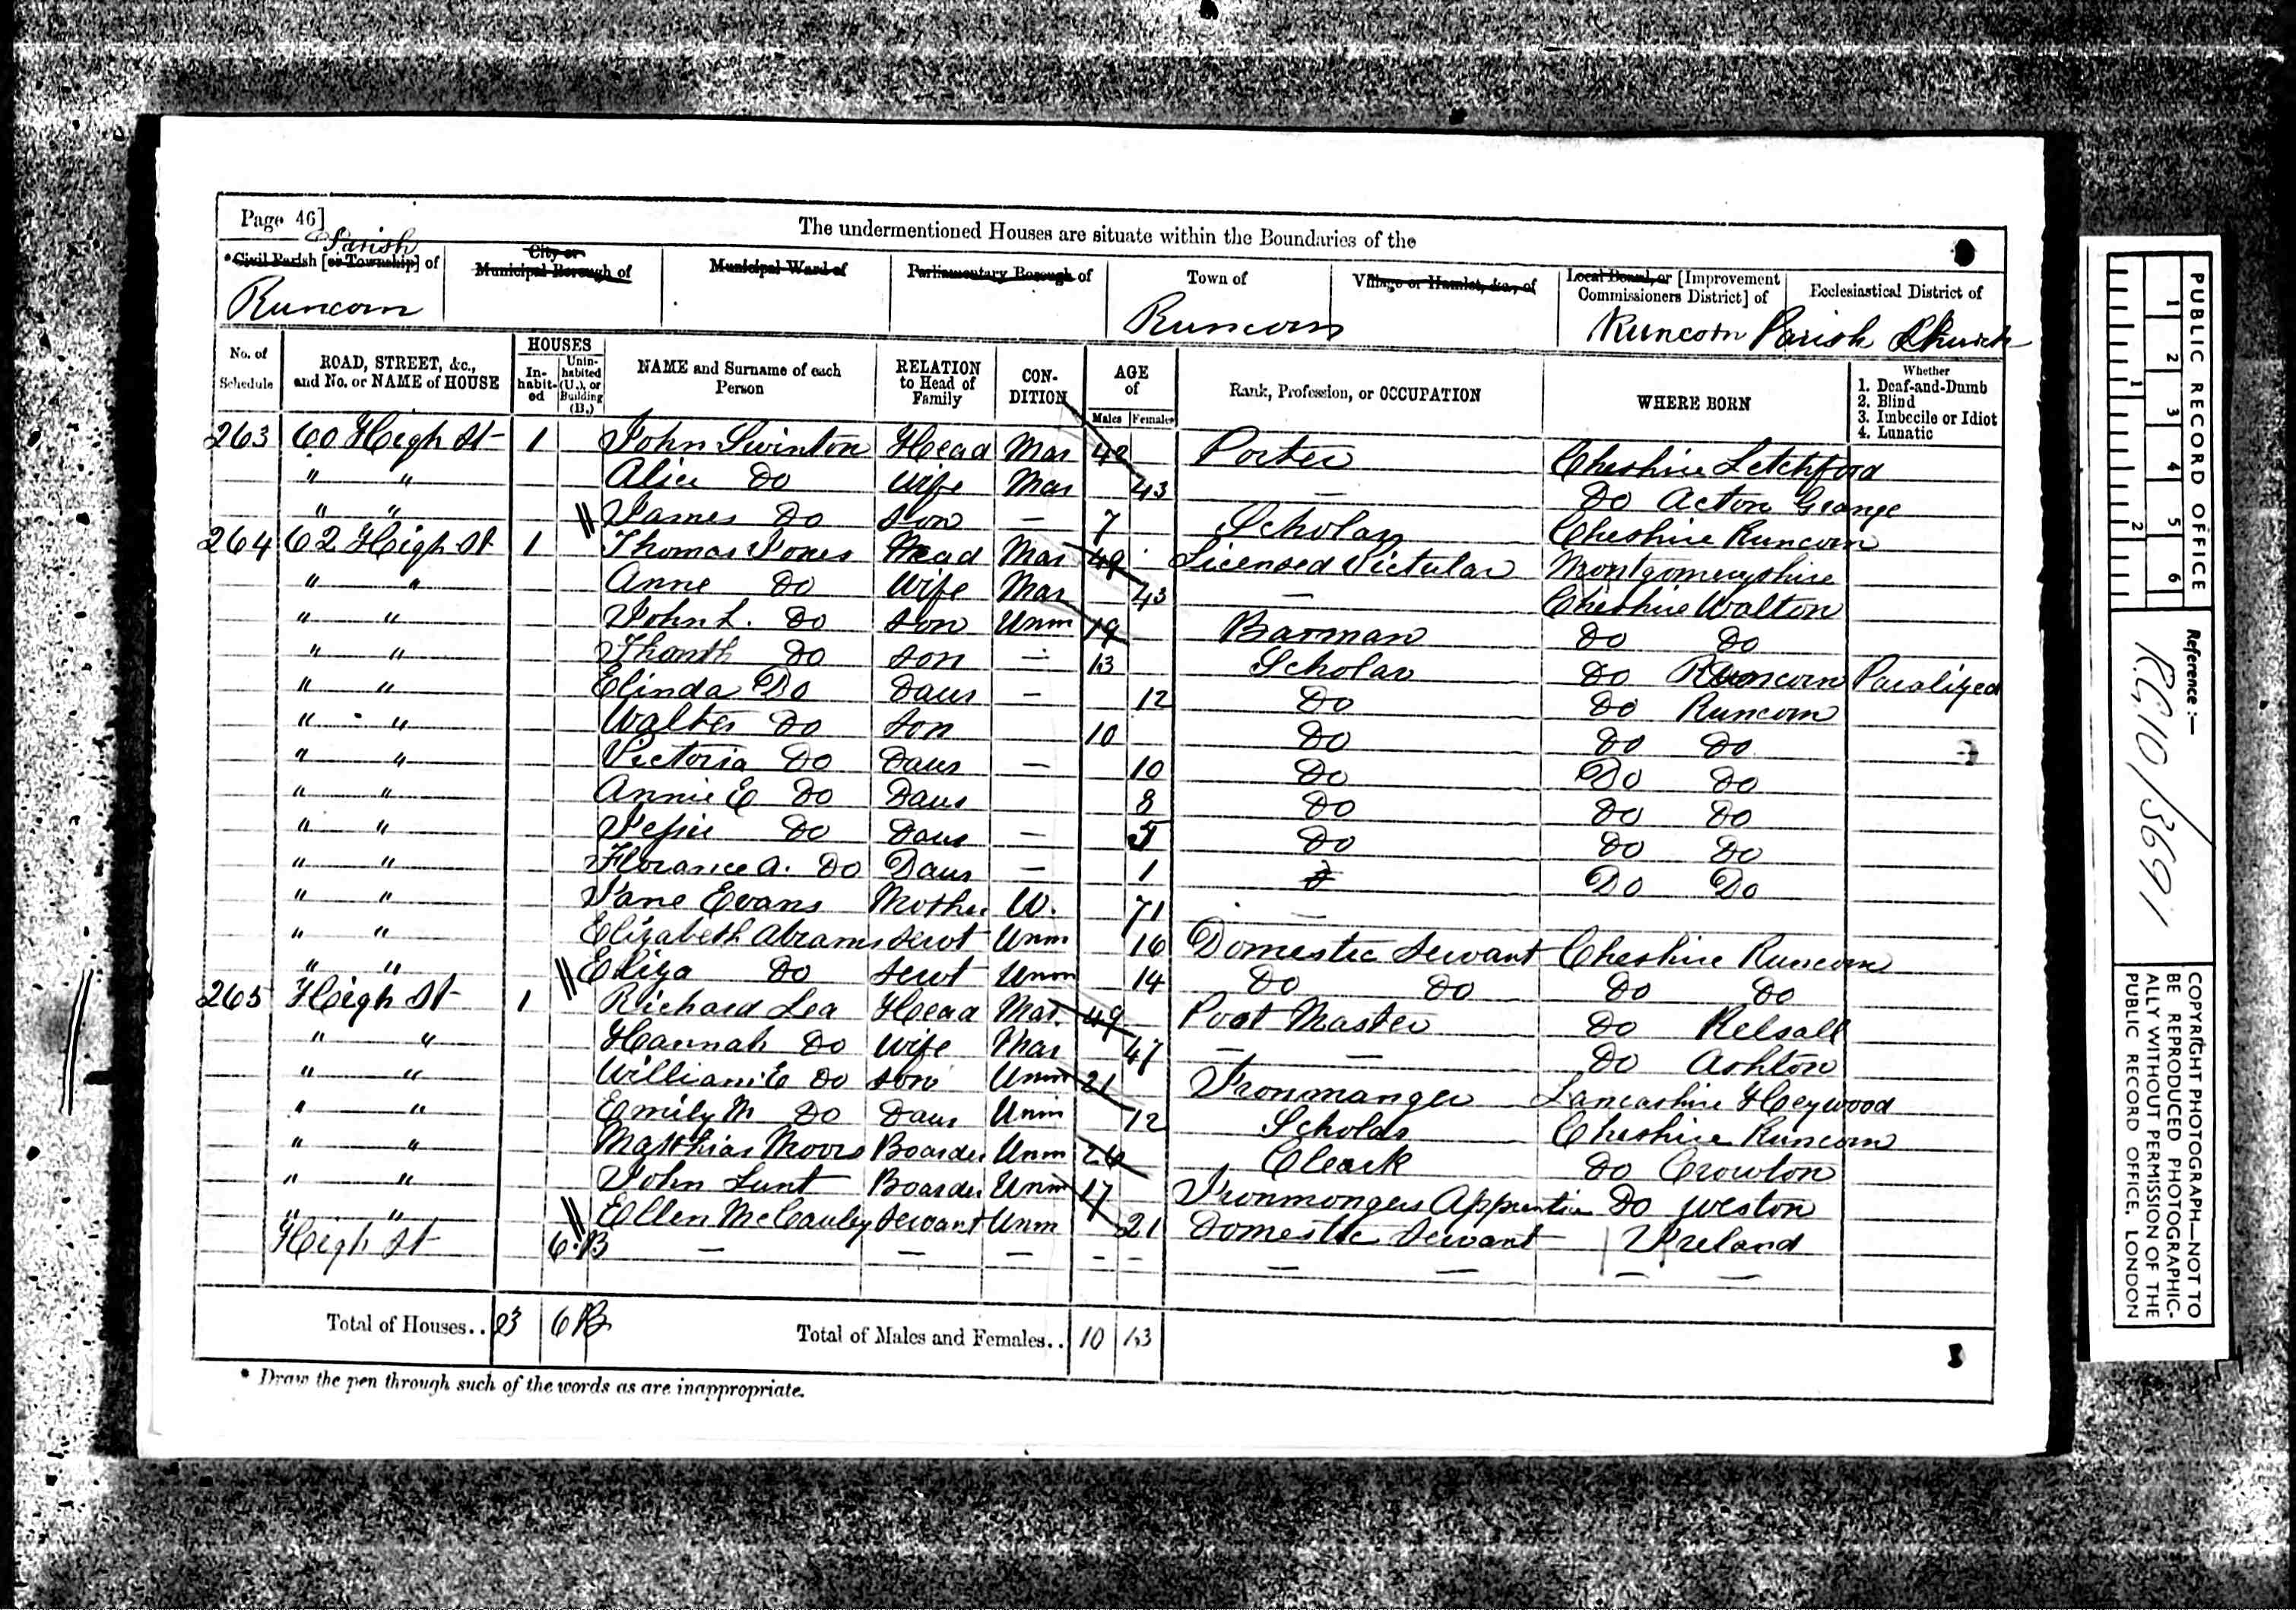 Page 46]
The undermentioned Houses are situate within the Boundaries of the
Parish
*Civil Parish [or Township] of
City or Municipal Borough of
Municipal Ward of
Parliamentary Borough of
Town of
Village or Hamlet, &c., of
Local Board, or [Improvement Commissioners District] of
Ecclesiastical District of
Runcorn
Runcorn
Runcorn Parish Church
No. of Schedule
ROAD, STREET, &c., and No. or NAME of HOUSE
HOUSES
In-habit-ed
Unin-habited (U.), or Building (B.)
NAME and Surname of each Person
RELATION to Head of Family
CON-DITION
AGE of
Males
Females
Rank, Profession, or OCCUPATION
WHERE BORN
Whether
1. Deaf-and-Dumb
2. Blind
3. Imbecile or Idiot
4. Lunatic
263 60 High St 1 John Swinton Head Mar 42 Porter Cheshire Letchford
" " Alice Do Wife Mar 43 — Do Acton Grange
" " James Do Son — 7 Scholar Cheshire Runcorn
264 62 High St 1 Thomas Jones Head Mar 49 Licensed Victular Montgomeryshire
" " Anne Do Wife Mar 43 — Cheshire Walton
" " John L. Do Son Unm 19 Barman Do Do
" " Do Son — 13 Scholar Do Runcorn Paralized
" " Elinda Do Daur — 12 Do Do Runcorn
" " Walter Do Son 10 Do Do Do
" " Victoria Do Daur — 10 Do Do Do
" " Annie E Do Daur 8 Do Do Do
" " Do Daur — 5 Do Do Do
" " Florance A. Do Daur — 1 Do Do
" " Jane Evans Mother W. 71 —
" " Elizabeth Abrams Servt Unm 16 Domestic Servant Cheshire Runcorn
" " Eliza Do Servt Unm 14 Do Do Do Do
265 High St 1 Richard Lea Head Mar. 49 Post Master Do Kelsall
" " Hannah Do Wife Mar 47 — — Do Ashton
" " William E Do Son Unm 21 Ironmanger Lancashire Heywood
" " Emily M Do Daur Unm 12 Scholar Cheshire Runcorn
" " Matthias Moors Boarder Unm 26 Cleark Do Crowton
" " John Lunt Boarder Unm 17 Ironmongers Apprentice Do Weston
" " Ellen McCauley Servant Unm 21 Domestic Servant Ireland
High St 6.B — — — - - — — — —
Total of Houses.. 3 6B
Total of Males and Females.. 10 13
* Draw the pen through such of the words as are inappropriate.
PUBLIC RECORD OFFICE
1 2 3 4 5 6
1 2
Reference :—
RG.10/3691
COPYRIGHT PHOTOGRAPH—NOT TO BE REPRODUCED PHOTOGRAPHIC-ALLY WITHOUT PERMISSION OF THE PUBLIC RECORD OFFICE, LONDON